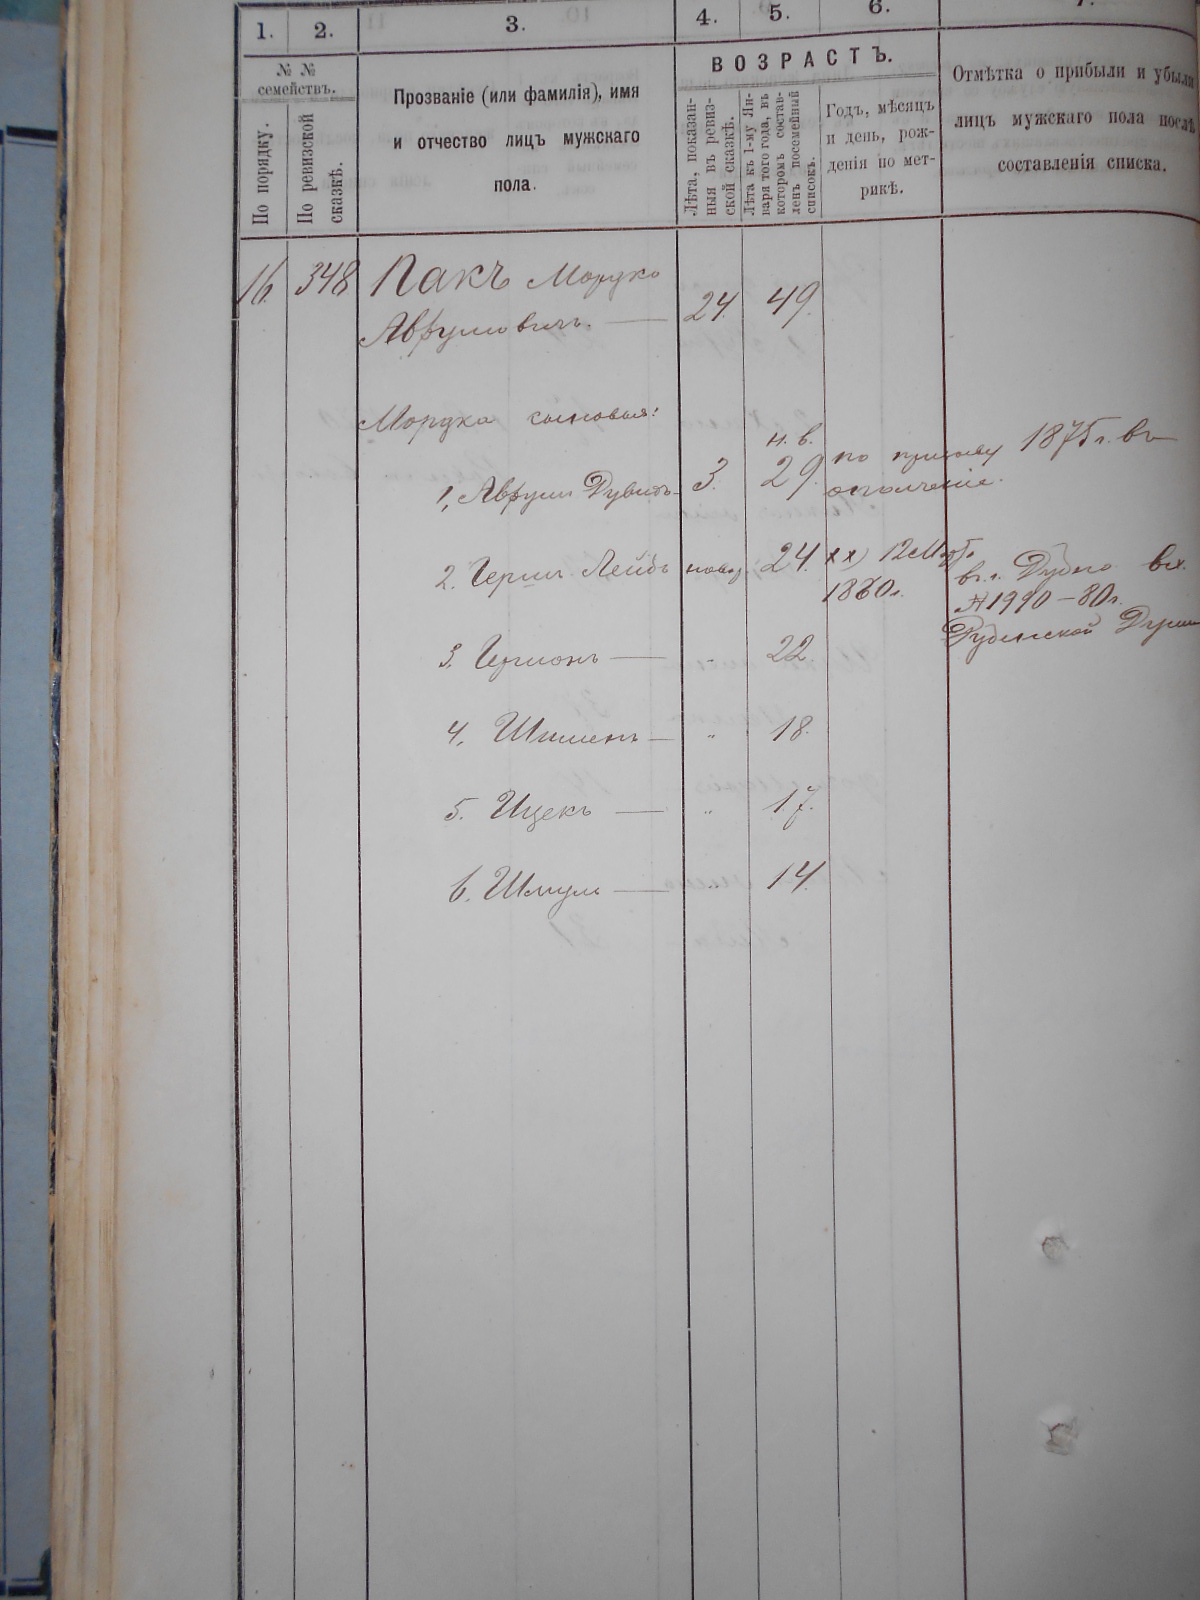 1. 2. 3. 4. 5. 6. 7.
№ №
семействъ.
По порядку.
По ревизской
сказкѣ.
Прозваніе (или фамилія), имя
и отчество лицъ мужскаго
пола.
ВОЗРАСТЪ.
Лѣта, показан-
ныя въ ревиз-
ской сказкѣ.
Лѣта къ 1-му Ян-
варя того года, въ
которомъ состав-
ленъ посемейный
списокъ.
Годъ, мѣсяцъ
и день, рож-
денія по мет-
рикѣ.
Отмѣтка о прибыли и убыли
лицъ мужскаго пола послѣ
составленія списка.
16. 348 Пакъ Мордко
Аврумовичъ. — 24. 49.
Мордка сыновья:
н. в.
1, Аврум Дувидъ 3. 29. по призыву 1875 г. въ
ополченіе.
2. Герш Лейбъ новор. 24. хх) 12
1860 г.
въ г. Дубно вх.
№ 1990 – 80 г.
Дубенской Думы
3. Гершонъ — " 22
4. Шимень — " 18.
5. Ицекъ — " 17.
6. Шмуль — " 14.